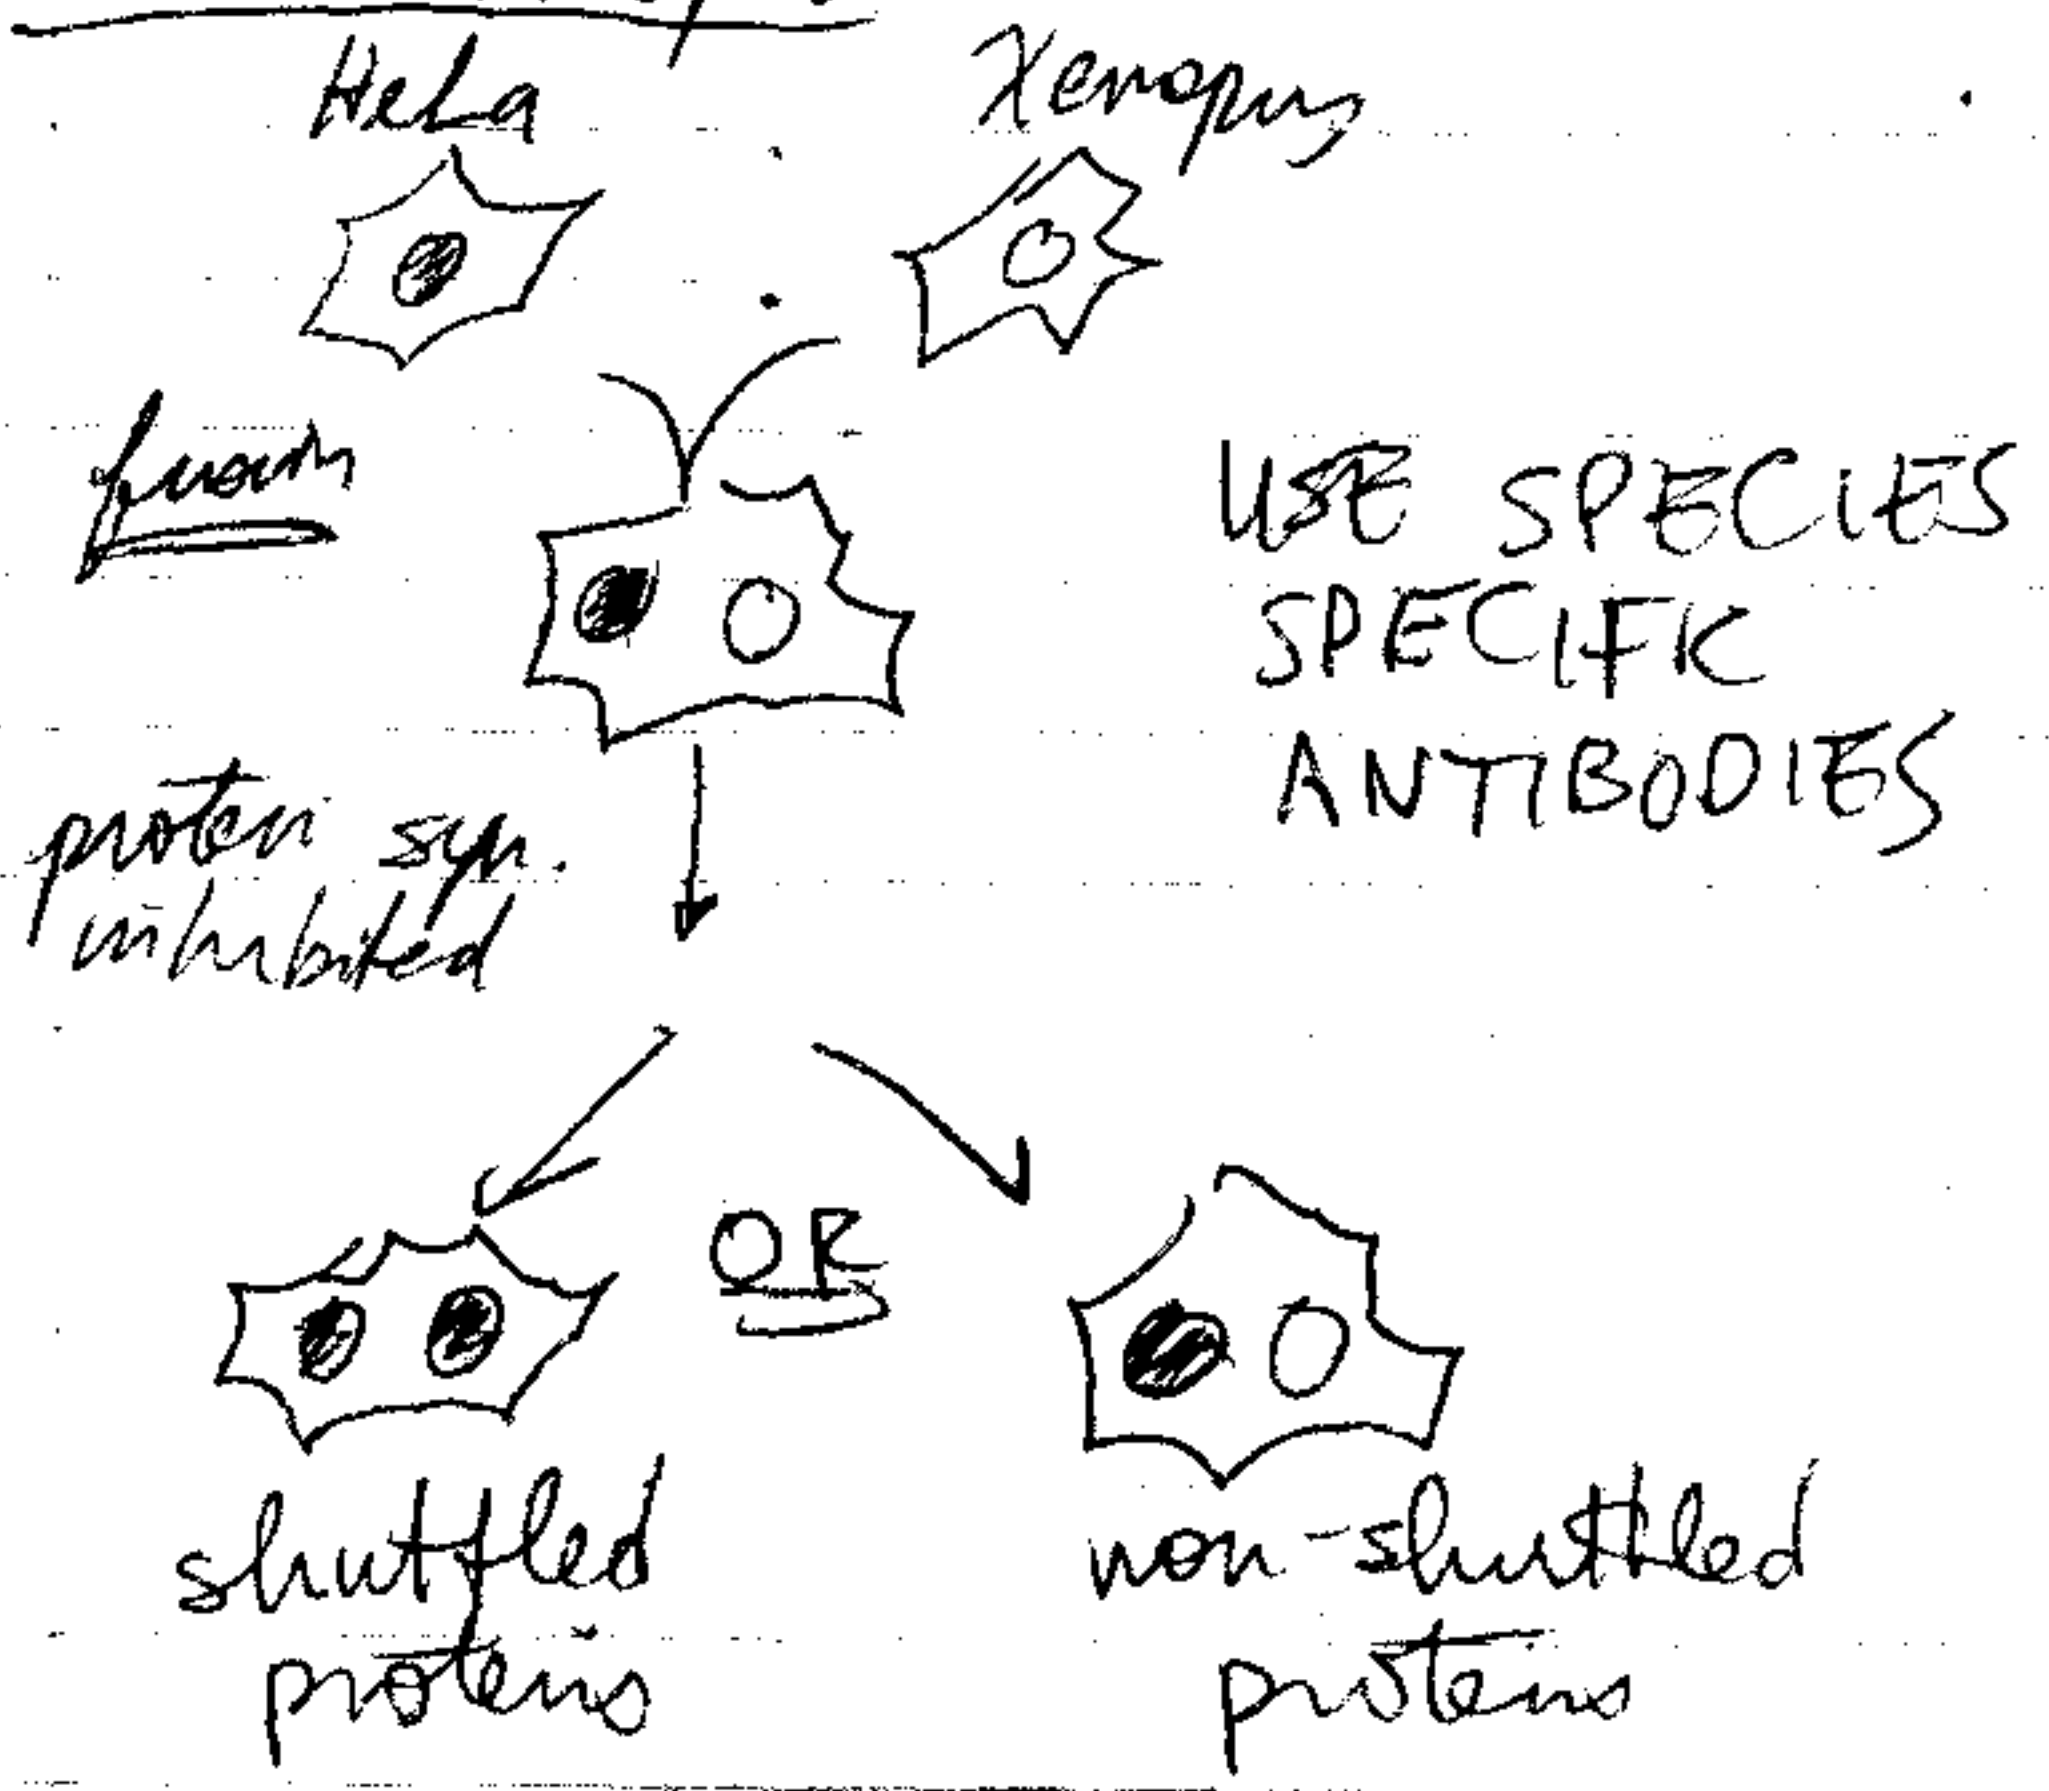 HeLa Xenopus
fusion
USE SPECIES
SPECIFIC
ANTIBODIES
protein syn.
inhibited
OR
shuttled
proteins
non-shuttled
proteins